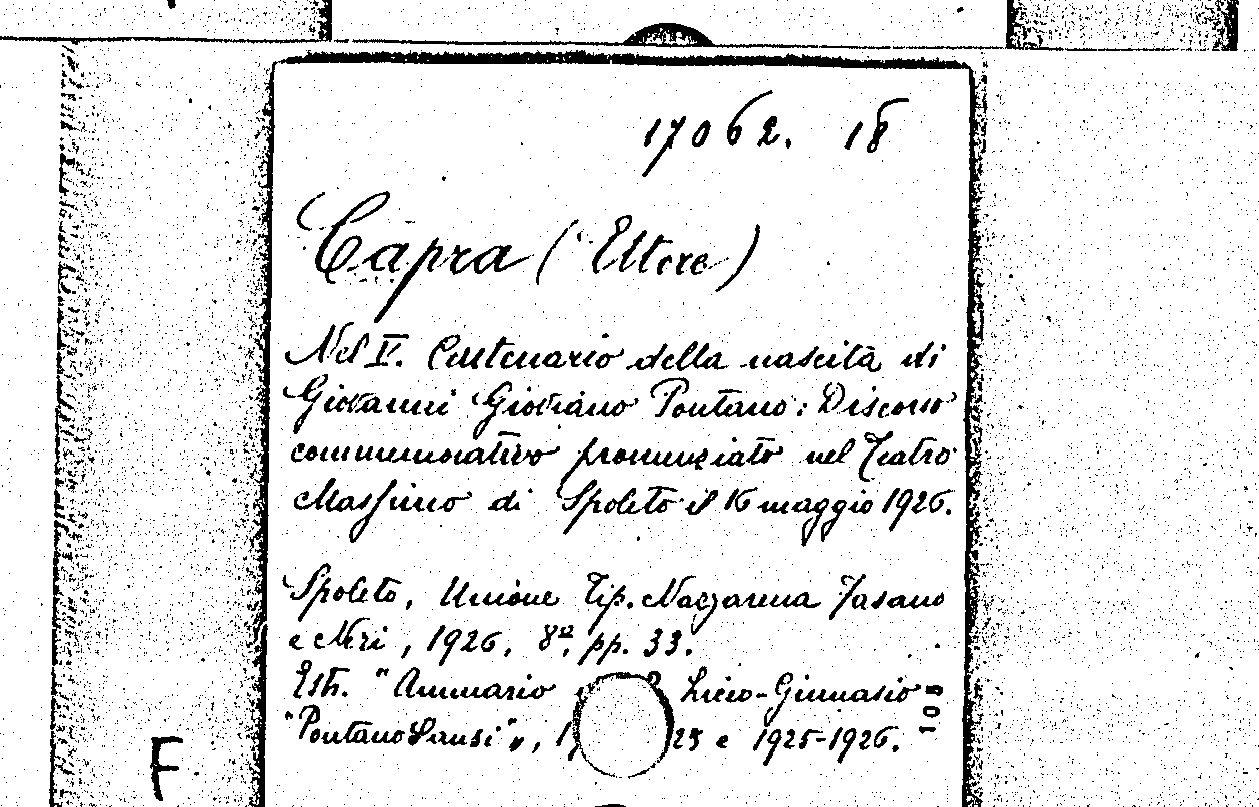 17062. 18
Capra (Ettore)
Nel V. Centenario della nascità di
Giovanni Gioviano Pontano: Discorso
commemorativo pronunziato nel Teatro
Massimo di Spoleto il 16 maggio 1926.
Spoleto, Unione Tip. Nazzarena Fasano
e Neri, 1926, 8º, pp. 33.
Estr. "Annuario Liceo-Ginnasio
"Pontano Sansi", e 1925-1926.
108
F